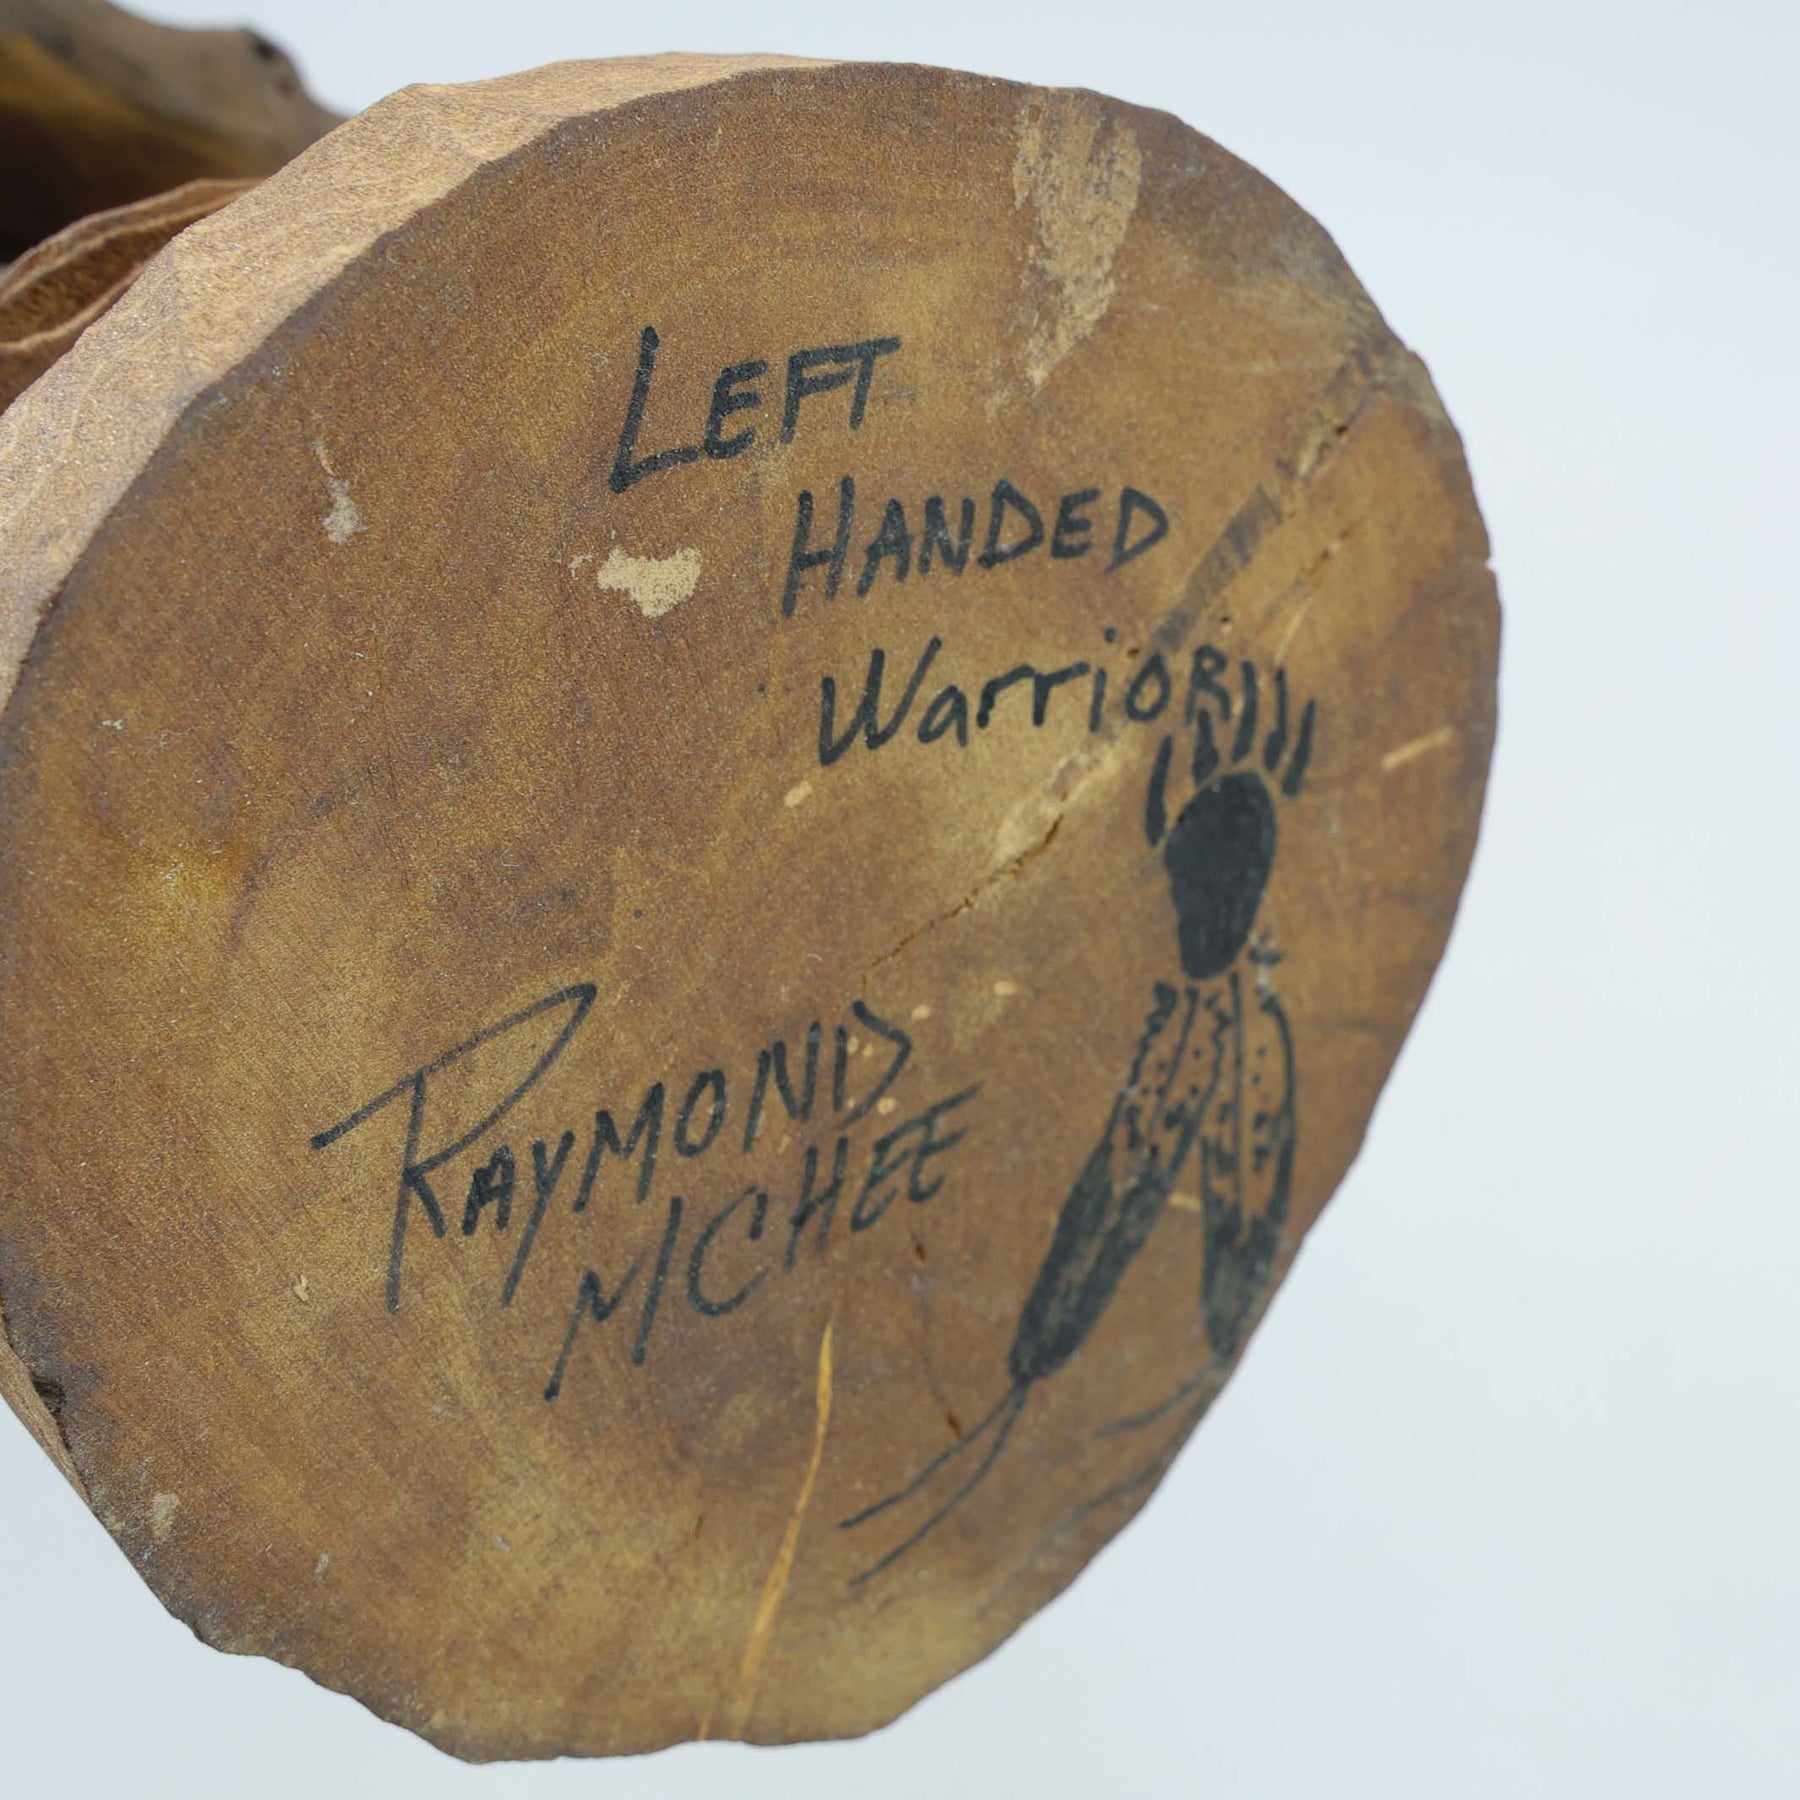 LEFT
HANDED
WarrioR
RAYMOND
MCHEE